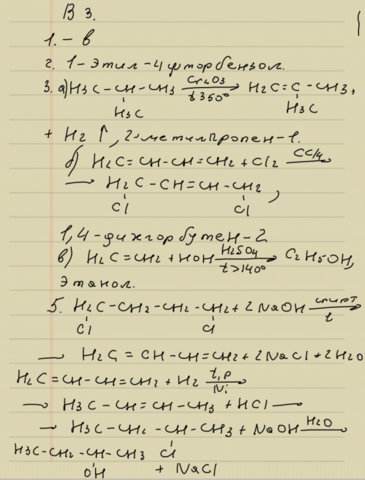 В 3.
1. - в
2. 1-этил-4 фторбензол.
3. а) H3C-CH-CH3 Cr2O3 t350° H2C=C-CH3,
H3C H3C
+ H2 ↑, 2-метилпропен-1.
б) H2C=CH-CH=CH2 + Cl2 CCl4
→ H2C-CH=CH-CH2,
Cl Cl
1,4-дихлорбутен-2
в) H2C=CH2 + HOH H2SO4 t>140° C2H5OH,
этанол.
5. H2C-CH2-CH2-CH2 + 2NaOH спирт t
Cl Cl
→ H2C=CH-CH=CH2 + 2NaCl + 2H2O
H2C=CH-CH=CH2 + H2 t,p Ni
→ H3C-CH=CH-CH3 + HCl →
→ H3C-CH2-CH-CH3 + NaOH H2O
Cl
H3C-CH2-CH-CH3
OH + NaCl